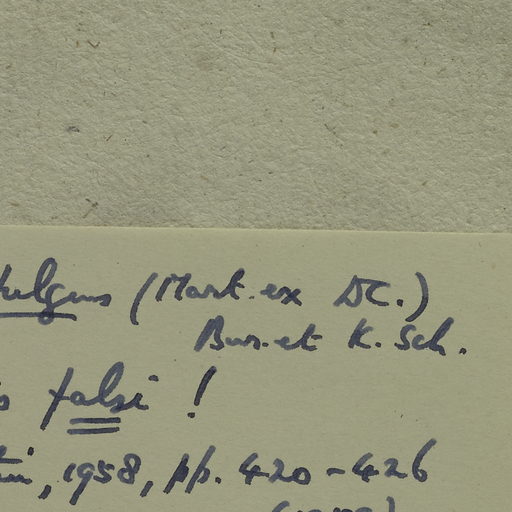 fulgens (Mart. ex DC.)
Bur. et K. Sch.
falsi !
1958, pp. 420-426